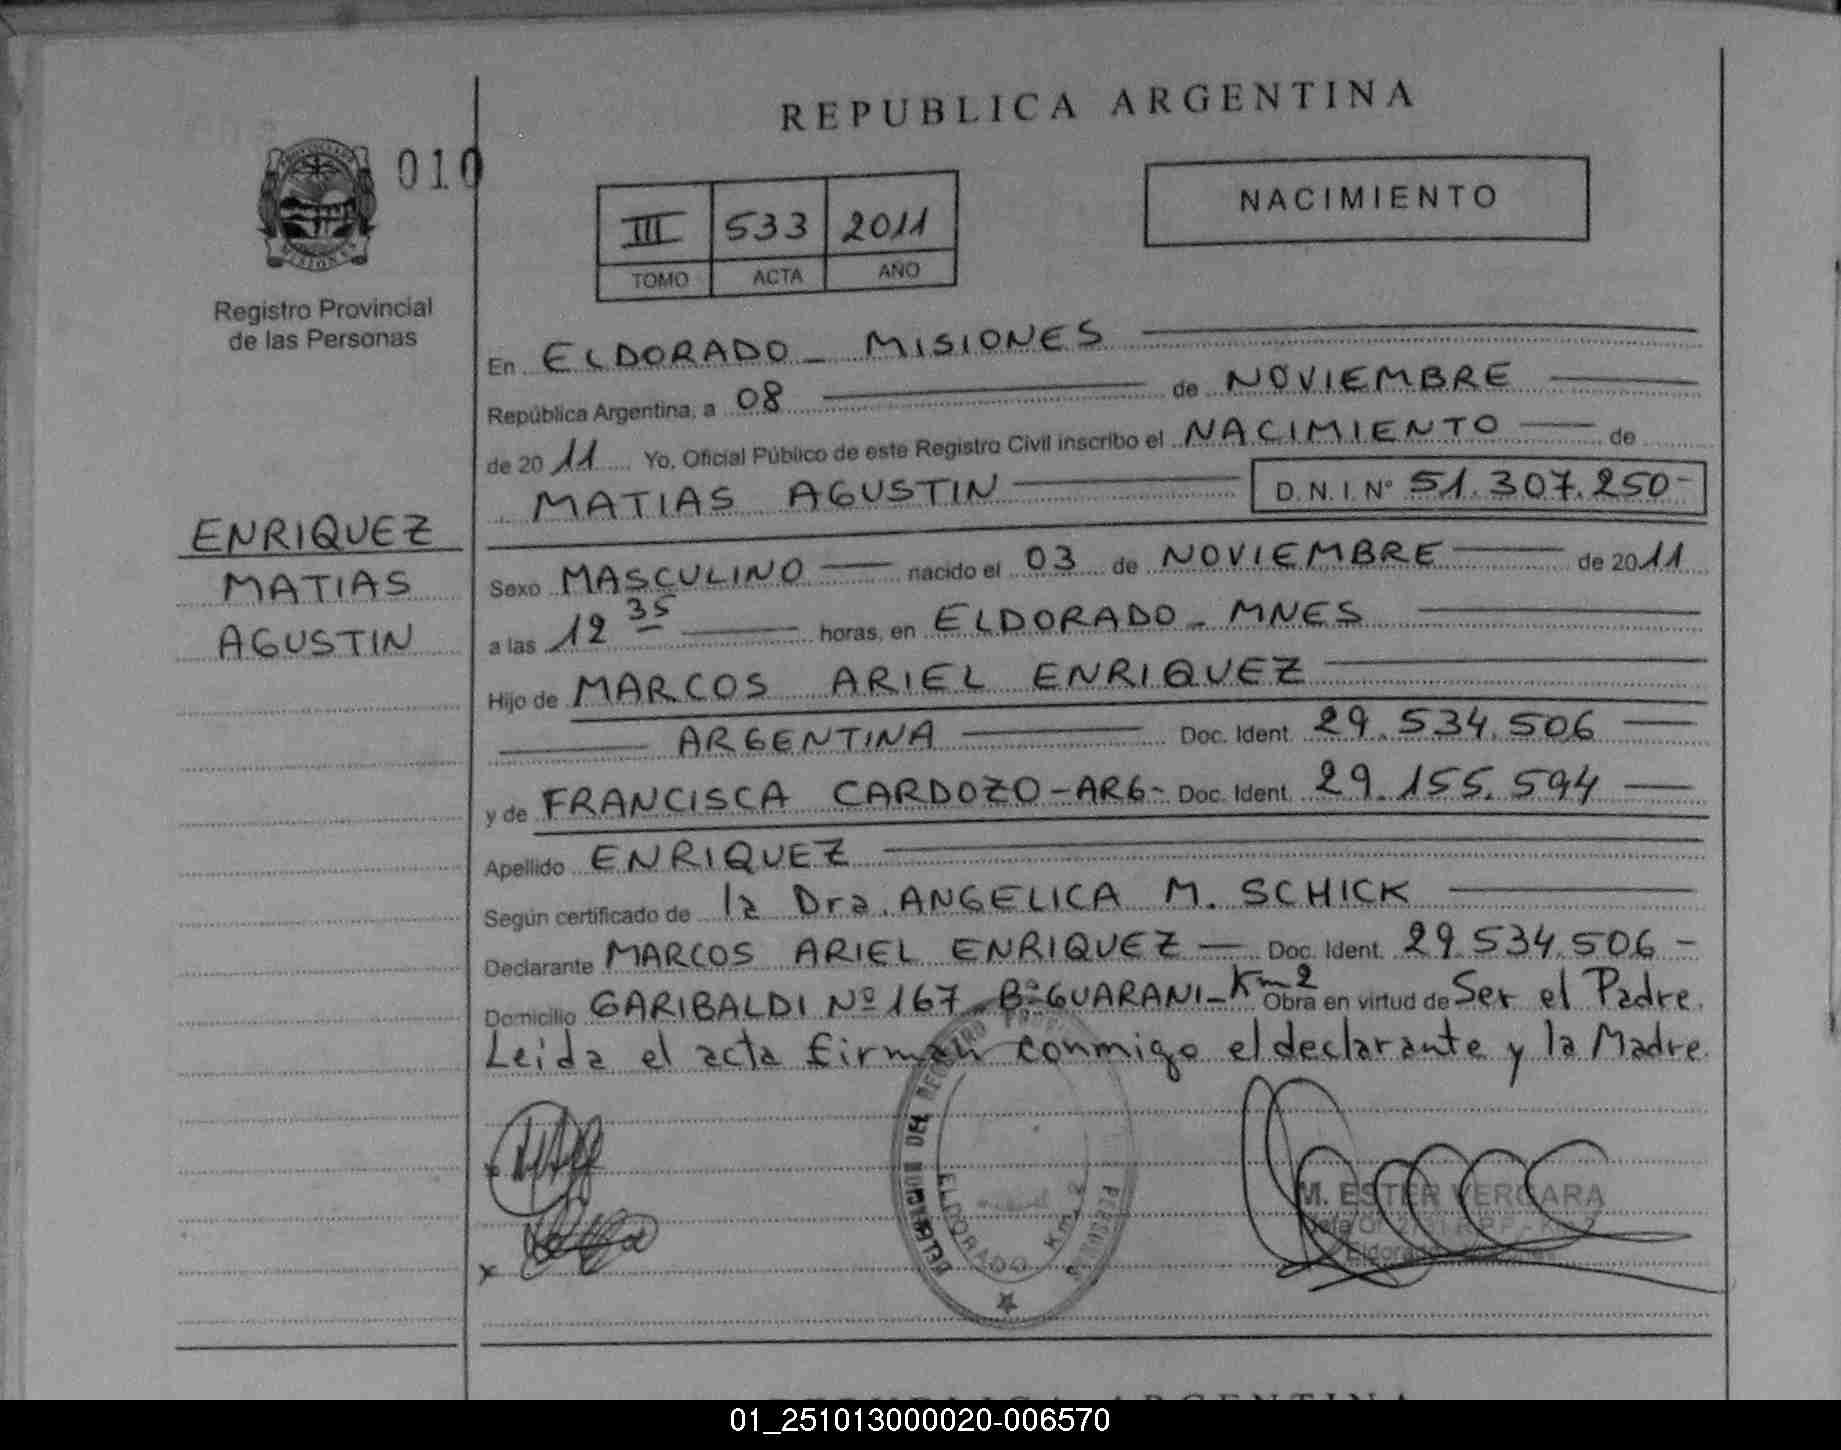 REPUBLICA ARGENTINA
010
NACIMIENTO
III 533 2011
TOMO ACTA AÑO
Registro Provincial
de las Personas
En ELDORADO - MISIONES
República Argentina, a 08 de NOVIEMBRE
de 2011 Yo, Oficial Público de este Registro Civil inscribo el NACIMIENTO de
MATIAS AGUSTIN D.N.I. Nº 51.307.250-
ENRIQUEZ
MATIAS
AGUSTIN
Sexo MASCULINO nacido el 03 de NOVIEMBRE de 2011
a las 12 35 horas, en ELDORADO - MNES
Hijo de MARCOS ARIEL ENRIQUEZ
ARGENTINA Doc. Ident. 29.534.506
y de FRANCISCA CARDOZO-ARG- Doc. Ident. 29.155.594
Apellido ENRIQUEZ
Según certificado de la Dra. ANGELICA M. SCHICK
Declarante MARCOS ARIEL ENRIQUEZ Doc. Ident. 29.534.506 -
Domicilio GARIBALDI Nº 167 - Bº GUARANI - Km 2 Obra en virtud de Ser el Padre.
Leida el acta firman conmigo el declarante y la Madre.
DEL REGISTRO PERSONAS
ELDORADO Km. 2
M. ESTER VERGARA
REPUBLICA ARGENTINA
01_251013000020-006570